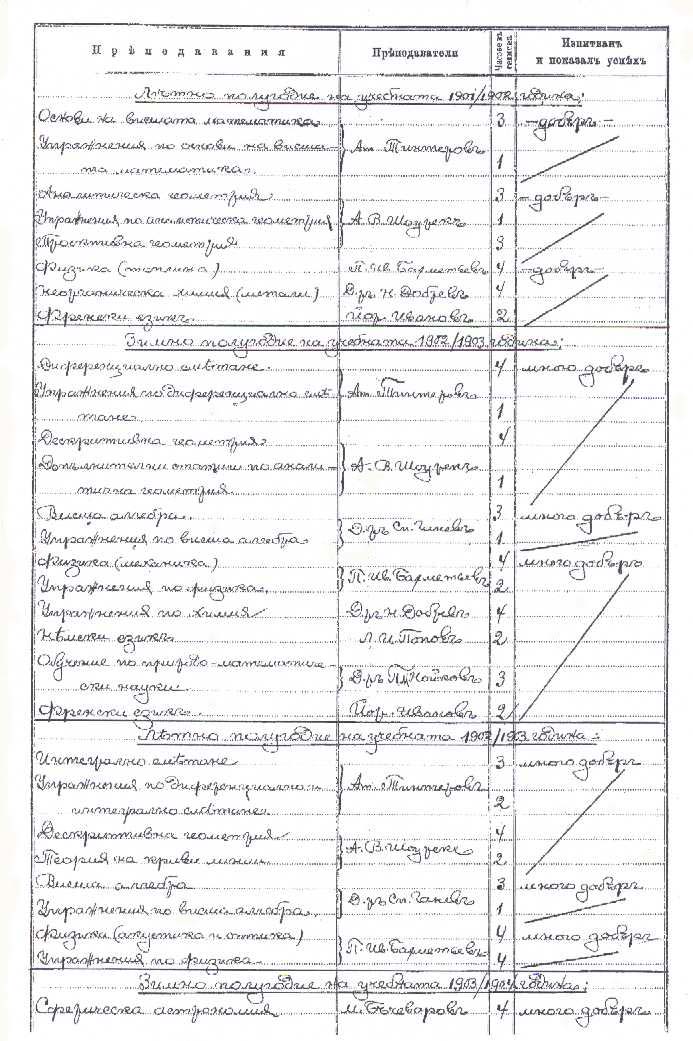 Прѣподавания Прѣподаватели Часове въ седмица Изпитванъ и показалъ успѣхъ
Лѣтно полугодие на учебната 1901/1902 година:
Основи на висшата математика 3 – добъръ –
Упражнения по основи на висша- Ат. Тинтеровъ
та математика. 1
Аналитическа геометрия 3 – добъръ –
Упражнения по аналитическа геометрия А. В. Шоурекъ 1
Проективна геометрия 3
Физика (топлина) П. Ив. Бахметьевъ 4 – добъръ –
Неорганическа химия (метали) Д-ръ Н. Добревъ 4
Френски езикъ. Йор. Ивановъ 2
Зимно полугодие на учебната 1902/1903 година:
Диференциално смѣтане. 4 много добъръ
Упражнения по диференциално смѣ- Ат. Тинтеровъ
тане 1
Дескриптивна геометрия 4
Допълнителни статии по анали- А. В. Шоурекъ
тична геометрия 1
Висша алгебра. 3 много добъръ
Упражнения по висша алгебра Д-ръ Сп. Ганевъ 1
Физика (механика) 4 много добъръ
Упражнения по физика. П. Ив. Бахметьевъ 2
Упражнения по химия Д-ръ Н. Добревъ 4
Нѣмски езикъ Поповъ 2
Обучение по природо-математиче-
ски науки Д-ръ Нойковъ 3
Френски езикъ. Йор. Ивановъ 2
Лѣтно полугодие на учебната 1902/1903 година:
Интегрално смѣтане 3 много добъръ
Упражнения по диференциално и Ат. Тинтеровъ
интегрално смѣтане 2
Дескриптивна геометрия 4
Теория на криви линии А. В. Шоурекъ 2
Висша алгебра 3 много добъръ
Упражнения по висша алгебра. Д-ръ Сп. Ганевъ 1
Физика (акустика и оптика) 4 много добъръ
Упражнения по физика П. Ив. Бахметьевъ 4
Зимно полугодие на учебната 1903/1904 година:
Сферическа астрономия М. Бъчеваровъ 4 много добъръ